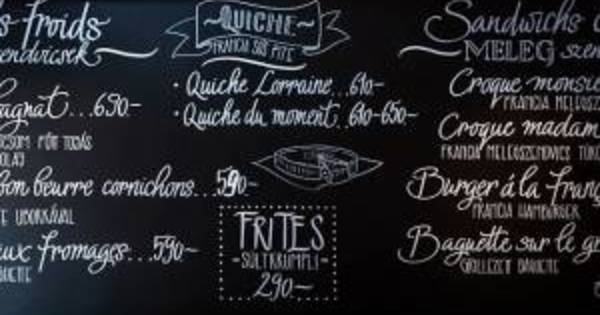 s froids
zendvicsek
agnat...690-
CSOM FŐTT TOJÁS
OLAJ
bon beurre cornichons...590-
E UBORKÁVAL
ux fromages...590-
BAGUETTE
QUICHE
FRANCIA SÓS PITE
• Quiche Lorraine...610-
• Quiche du moment..610-650-
FRITES
-SÜLTKRUMPLI-
290-
Sandwichs
MELEG szen
Croque monsie
FRANCIA MELEGSZ
Croque madam
FRANCIA MELEGSZENDVICS TÜKÖ
Burger á la Franç
FRANCIA HAMBURGER
Baguette sur le gr
GRILLEZETT BAGUETTE